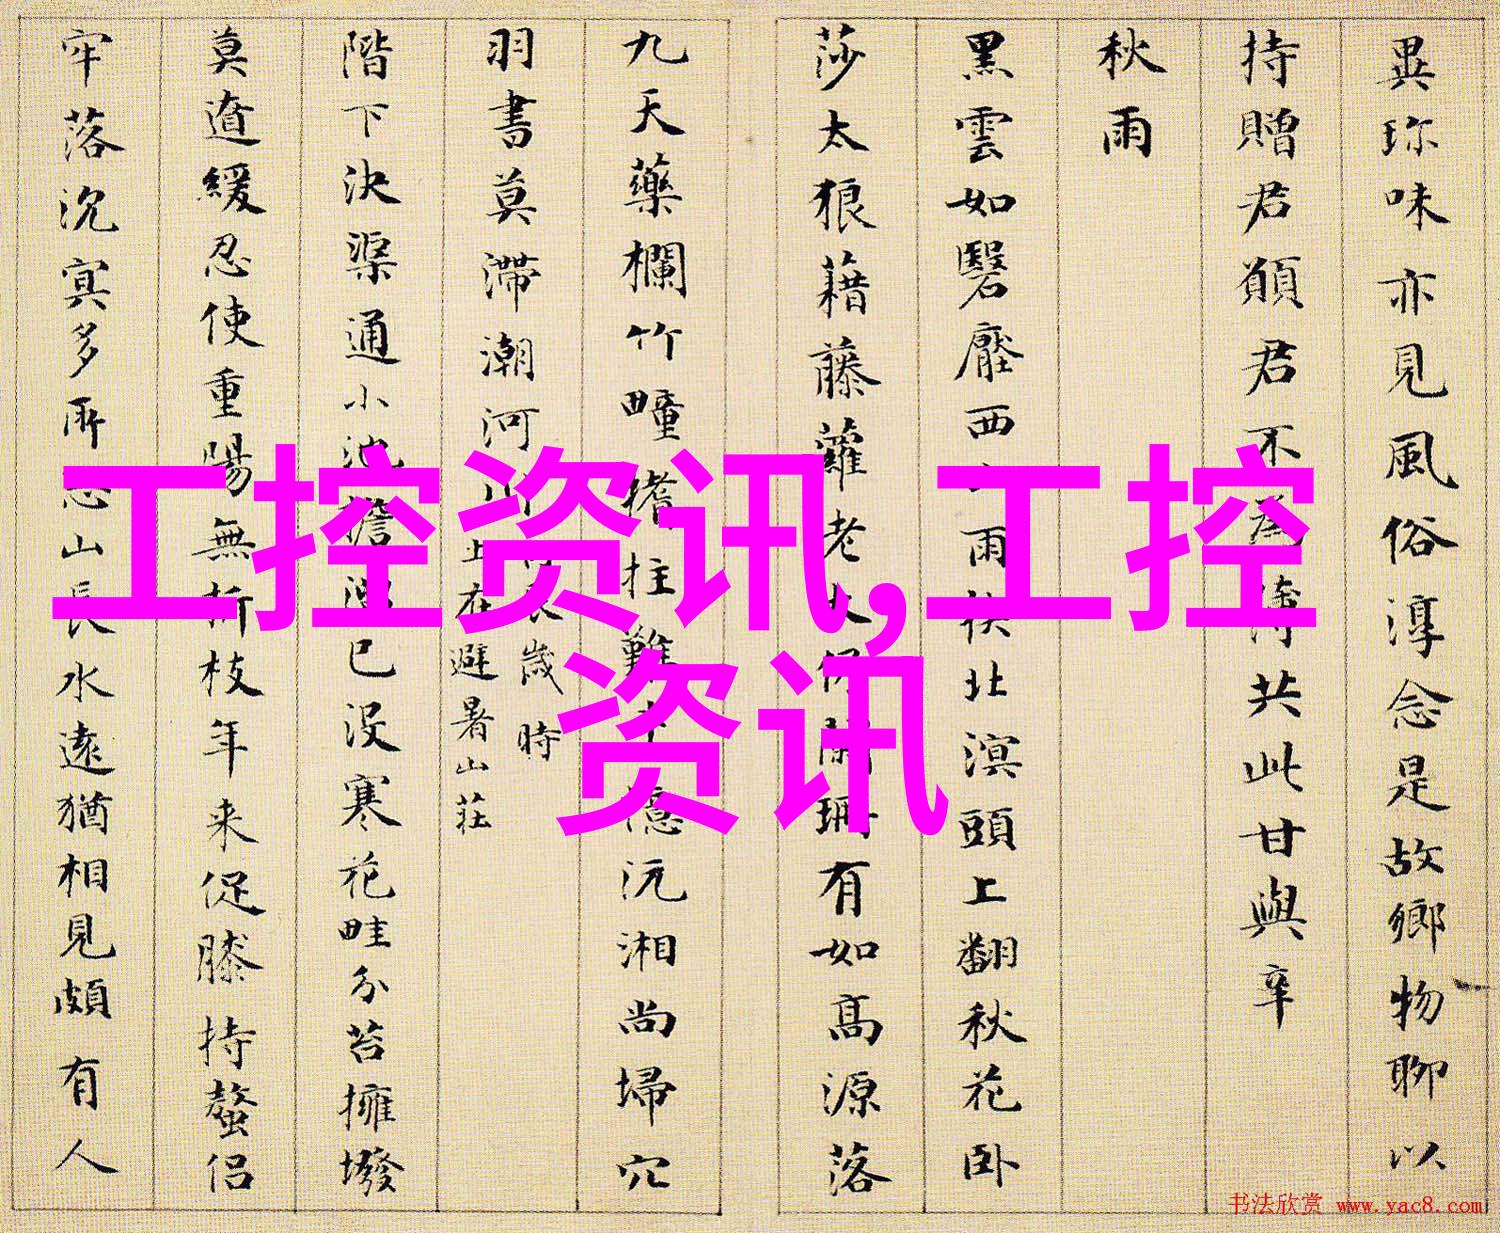 異珎味亦見風俗淳念是故鄉物聊以
持贈君願君不為共此甘與辛
秋雨
黑雲如毉壓西雨北溟頭上翻秋花卧
莎太狼藉藤蘿老有如高源落
九天藥欄竹疃拄難憶沅湘尚埽穴
羽書莫滯潮河
歲時
上在避暑山莊
階下決渠通小池已没寒花畦分苔擁撥
莫遒緩忍使重陽無折枝年来促膝持螯侣
牢落沉冥多所山長水遠猶相見頗有人
工控资讯,工控
资讯
书法欣赏 www.yac8.com